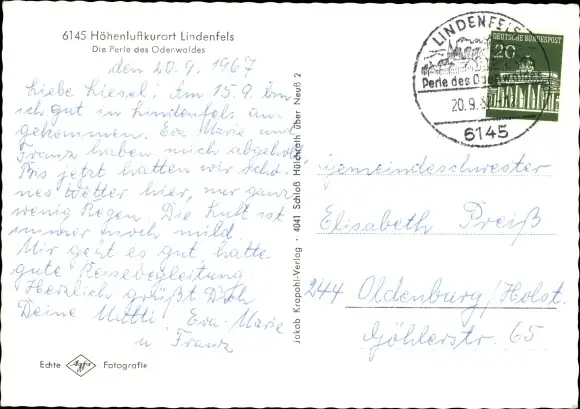 6145 Höhenluftkurort Lindenfels
Die Perle des Odenwaldes
den 20.9.1967
Liebe Liesel! Am 15.9. bin
ich gut in Lindenfels an-
gekommen. Eva Marie und
Franz haben mich abgeholt
Bis jetzt hatten wir schö-
nes Wetter hier, nur ganz
wenig Regen. Die Luft ist
immer noch mild.
Mir geht es gut, hatte
gute Reisebegleitung.
Herzlich grüßt Dich
Deine Mutti, Eva-Marie
u Franz
Echte Agfa Fotografie
Jakob Krapohl-Verlag · 4041 Schloß Hülchrath über Neuß 2
LINDENFELS
Perle des Odenwaldes
20.9.
6145
DEUTSCHE BUNDESPOST
20
Gemeindeschwester
Elisabeth Preiß
244 Oldenburg/Holst.
Göhlerstr. 65